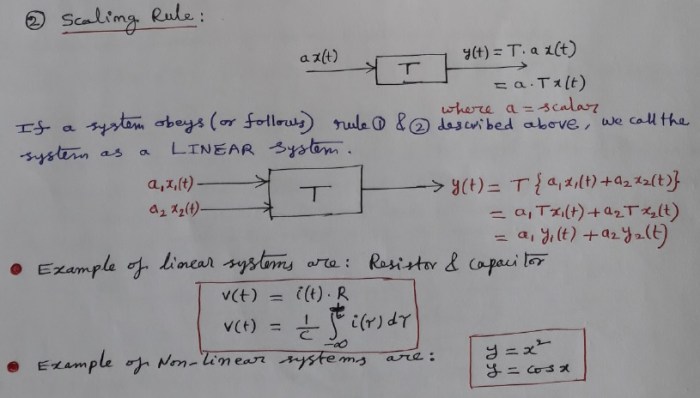 ② Scaling Rule:
a x(t) T y(t) = T. a x(t)
= a. T x(t)
where a = scalar
If a system obeys (or follows) rule ① & ② described above, we call the
system as a LINEAR System.
a₁x₁(t) T y(t) = T { a₁x₁(t) + a₂x₂(t)}
a₂ x₂(t) = a₁ T x₁(t) + a₂ T x₂(t)
= a₁ y₁(t) + a₂ y₂(t)
• Example of linear systems are: Resistor & capacitor
v(t) = i(t). R
v(t) = 1/C ∫_{-∞}^{t} i(τ) dτ
• Example of Non-linear systems are: y = x²
y = cos x